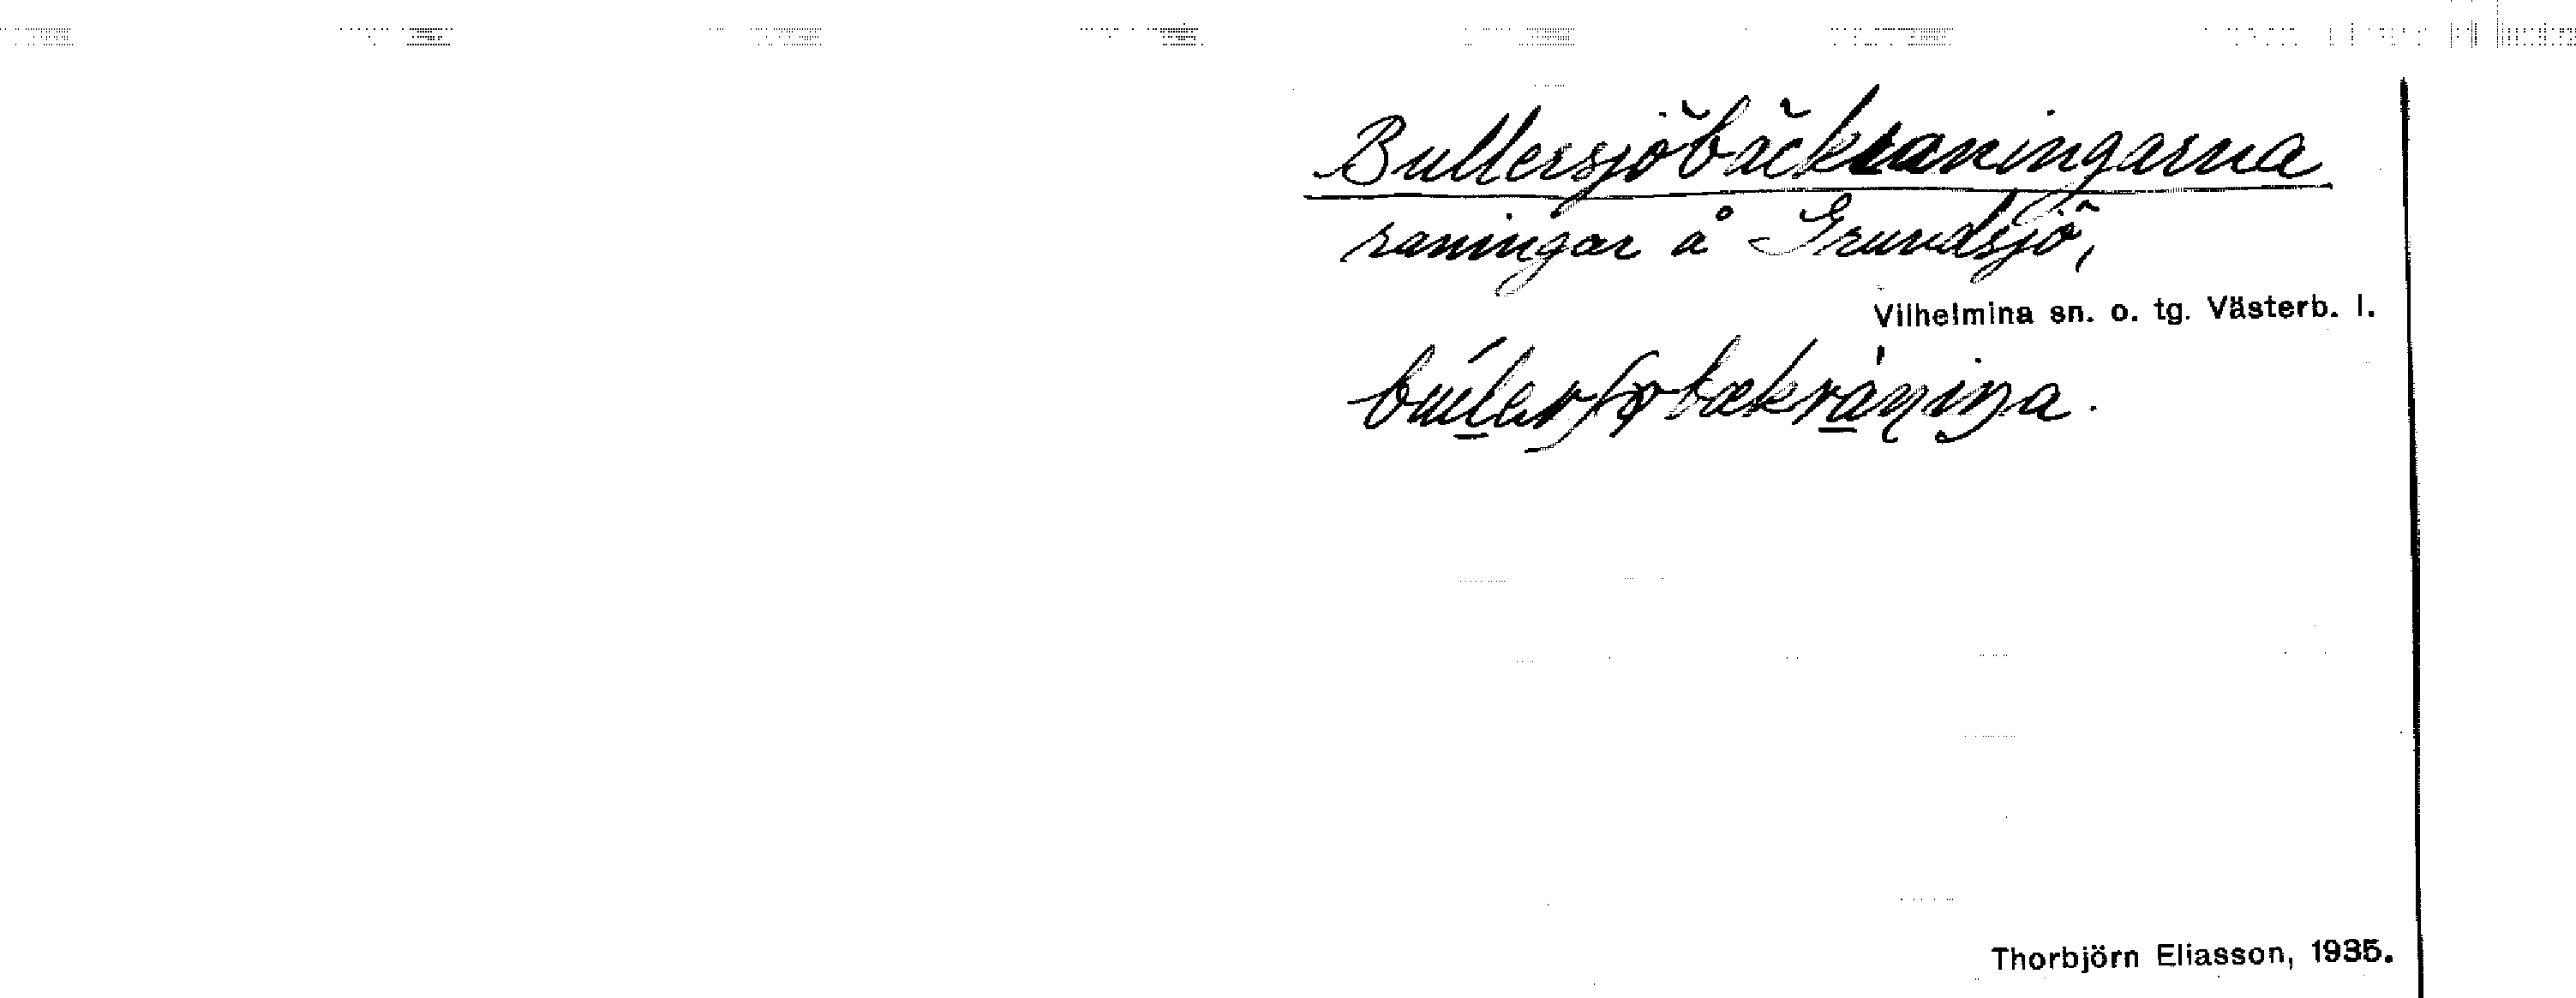 Bullersjöbäckraningarna
raningar å Grundsjö,
Vilhelmina sn. o. tg. Västerb. l.
Thorbjörn Eliasson, 1935.